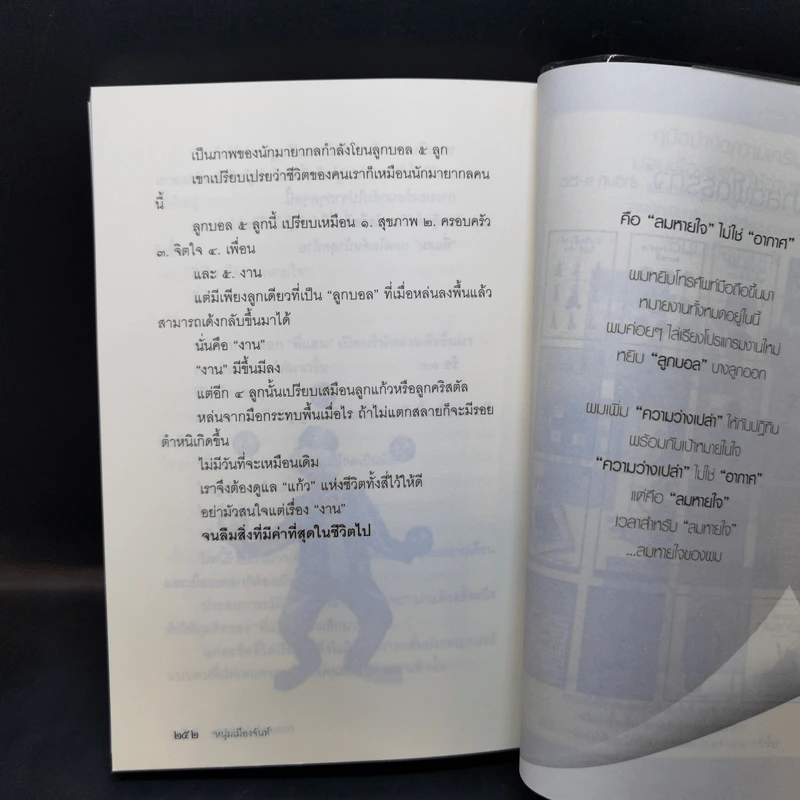 เป็นภาพของนักมายากลกำลังโยนลูกบอล ๕ ลูก
เขาเปรียบเปรยว่าชีวิตของคนเราก็เหมือนนักมายากลคน
นี้
ลูกบอล ๕ ลูกนี้ เปรียบเหมือน ๑. สุขภาพ ๒. ครอบครัว
๓. จิตใจ ๔. เพื่อน
และ ๕. งาน
แต่มีเพียงลูกเดียวที่เป็น “ลูกบอล” ที่เมื่อหล่นลงพื้นแล้ว
สามารถเด้งกลับขึ้นมาได้
นั่นคือ “งาน”
“งาน” มีขึ้นมีลง
แต่อีก ๔ ลูกนั้นเปรียบเสมือนลูกแก้วหรือลูกคริสตัล
หล่นจากมือกระทบพื้นเมื่อไร ถ้าไม่แตกสลายก็จะมีรอย
ตำหนิเกิดขึ้น
ไม่มีวันที่จะเหมือนเดิม
เราจึงต้องดูแล “แก้ว” แห่งชีวิตทั้งสี่ไว้ให้ดี
อย่ามัวสนใจแต่เรื่อง “งาน”
จนลืมสิ่งที่มีค่าที่สุดในชีวิตไป
๒๕๒ หนุ่มเมืองจันท์
คือ “ลมหายใจ” ไม่ใช่ “อากาศ”
ผมหยิบโทรศัพท์มือถือขึ้นมา
หมายงานทั้งหมดอยู่ในนี้
ผมค่อยๆ ไล่เรียงโปรแกรมงานใหม่
หยิบ “ลูกบอล” บางลูกออก
ผมเพิ่ม “ความว่างเปล่า” ให้กับปฏิทิน
พร้อมกับเป้าหมายในใจ
“ความว่างเปล่า” ไม่ใช่ “อากาศ”
แต่คือ “ลมหายใจ”
เวลาสำหรับ “ลมหายใจ”
...ลมหายใจของผม